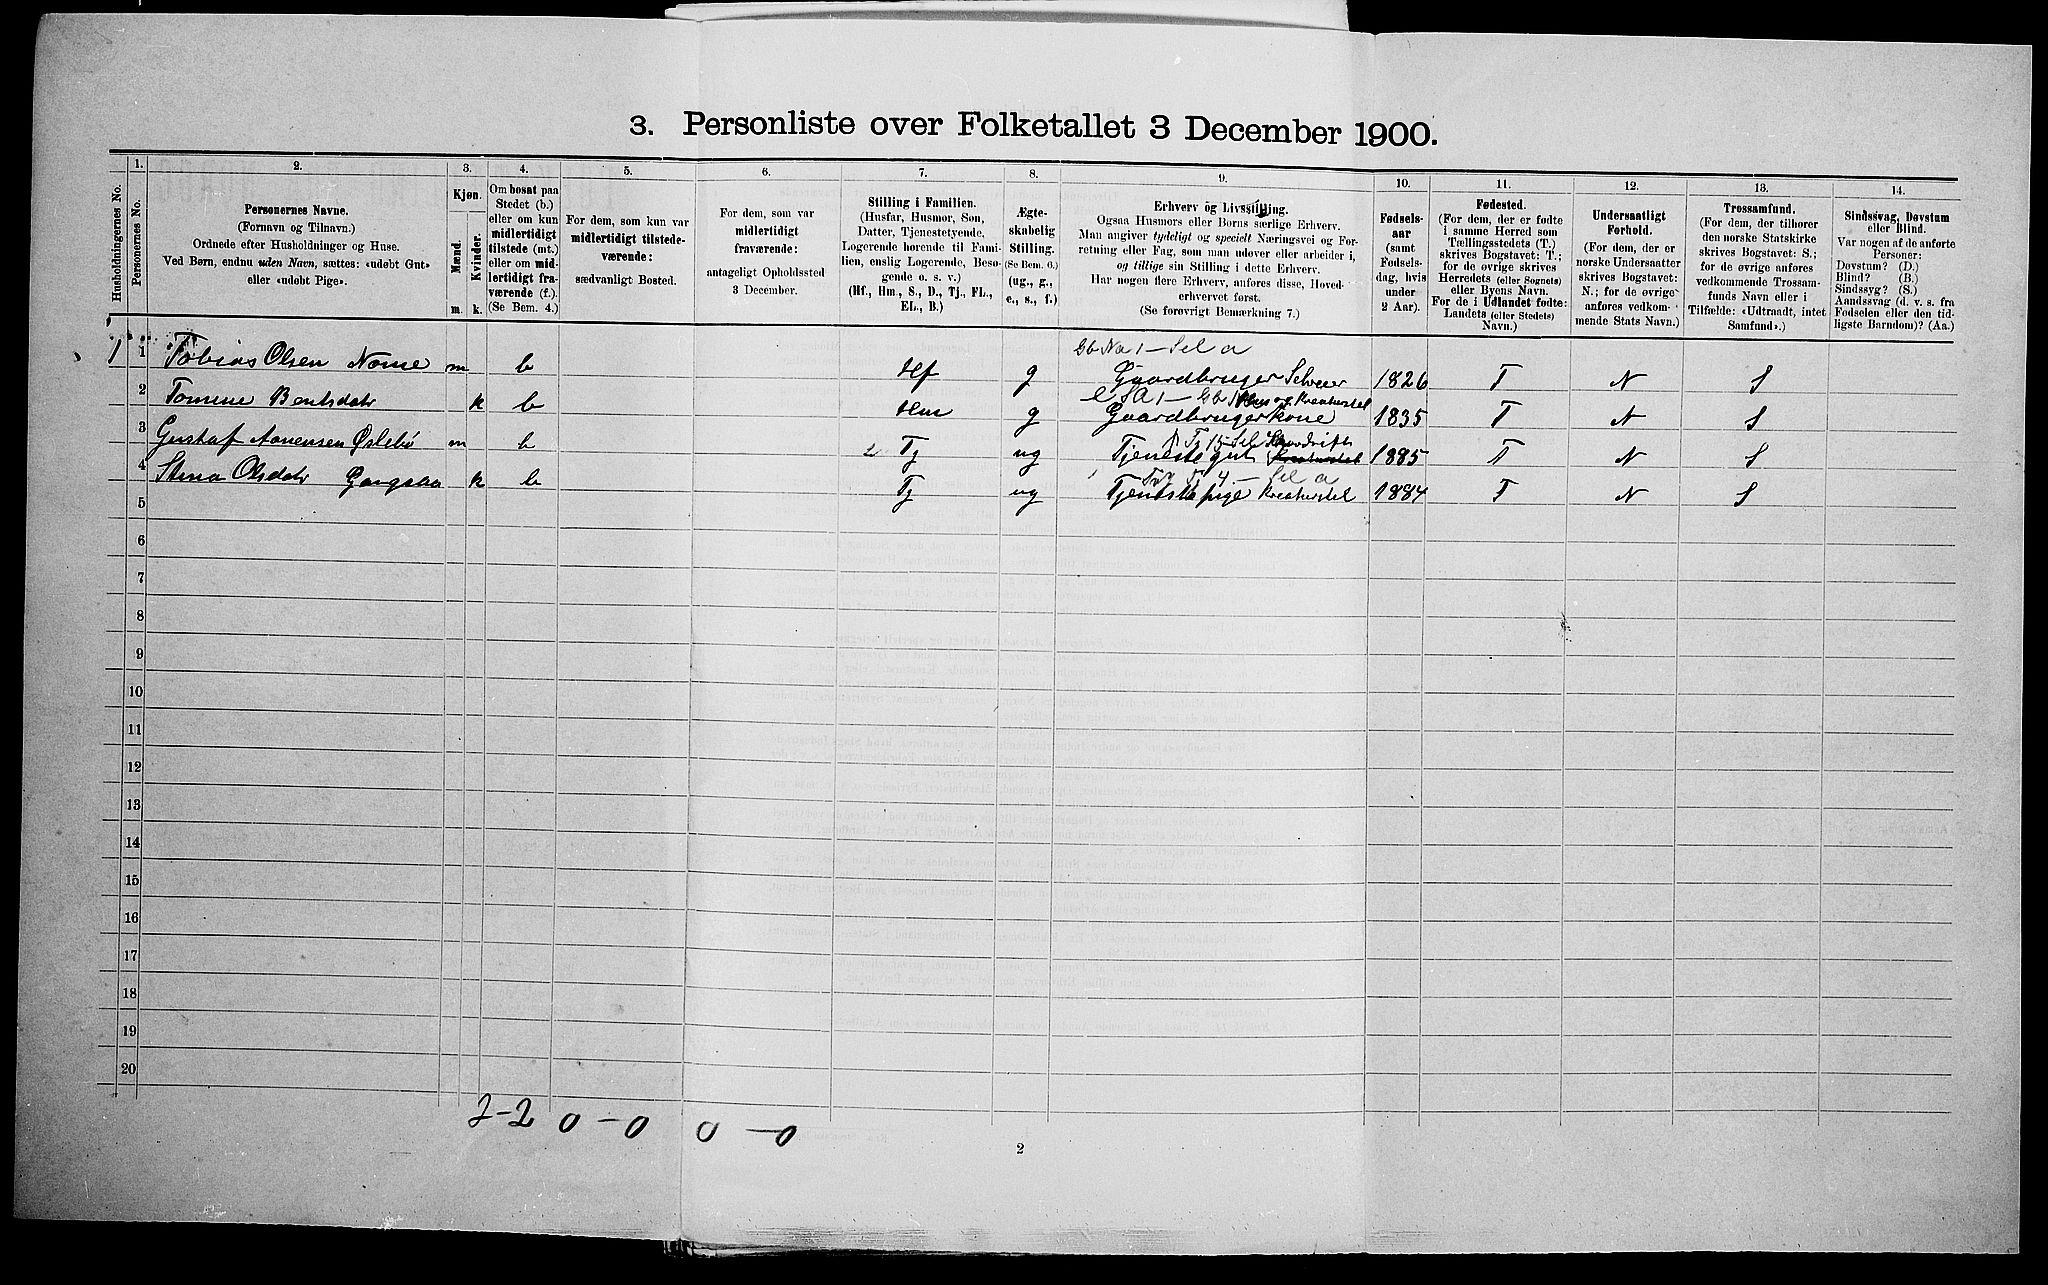 3. Personliste over Folketallet 3 December 1900.
Husholdningernes No.
1.
Personernes No.
2.
Personernes Navne.
(Fornavn og Tilnavn.)
Ordnede efter Husholdninger og Huse.
Ved Børn, endnu uden Navn, sættes: «udøbt Gut»
eller «udøbt Pige».
3.
Kjøn.
Mænd.
Kvinder.
m. k.
4.
Om bosat paa
Stedet (b.)
eller om kun
midlertidigt
tilstede (mt.)
eller om mid-
lertidigt fra-
værende (f.).
(Se Bem. 4.)
5.
For dem, som kun var
midlertidigt tilstede-
værende:
sædvanligt Bosted.
6.
For dem, som var
midlertidigt
fraværende:
antageligt Opholdssted
3 December.
7.
Stilling i Familien.
(Husfar, Husmor, Søn,
Datter, Tjenestetyende,
Logerende hørende til Fami-
lien, enslig Logerende, Besø-
gende o. s. v.)
(Hf., Hm., S., D., Tj., FL.,
EL., B.)
8.
Ægte-
skabelig
Stilling.
(Se Bem. 6.)
(ug., g.,
e., s., f.)
9.
Erhverv og Livsstilling.
Ogsaa Husmors eller Børns særlige Erhverv.
Man angiver tydeligt og specielt Næringsvei og For-
retning eller Fag, som man udøver eller arbeider i,
og tillige sin Stilling i dette Erhverv.
Har nogen flere Erhverv, anføres disse, Hoved-
erhvervet først.
(Se forøvrigt Bemærkning 7.)
10.
Fødsels-
aar
(samt
Fødsels-
dag, hvis
under
2 Aar).
11.
Fødested.
(For dem, der er fødte
i samme Herred som
Tællingsstedets (T.)
skrives Bogstavet: T.;
for de øvrige skrives
Herredets (eller Sognets)
eller Byens Navn.
For de i Udlandet fødte:
Landets (eller Stedets)
Navn.)
12.
Undersaatligt
Forhold.
(For dem, der er
norske Undersaatter
skrives Bogstavet:
N.; for de øvrige
anføres vedkom-
mende Stats Navn.)
13.
Trossamfund.
(For dem, der tilhører
den norske Statskirke
skrives Bogstavet: S.;
for de øvrige anføres
vedkommende Trossam-
funds Navn eller i
Tilfælde: «Udtraadt, intet
Samfund».)
14.
Sindssvag, Døvstum
eller Blind.
Var nogen af de anførte
Personer:
Døvstum? (D.)
Blind? (B.)
Sindssyg? (S.)
Aandssvag (d. v. s. fra
Fødselen eller den tid-
ligste Barndom)? (Aa.)
Gb No 1 – Sel a
1 1 Tobias Olsen Nome m b Hf g Gaardbruger Selveier 1826 T N S
2 Tomine Bentsdatr k b Hm g Gaardbrugerkone 1835 T N S
3 Gustaf Aanensen Øslebø m b Tj ug Tjenestegut Gaardsdrift 1885 T N S
4 Stina Olsdatr Gangsaa k b Tj ug Tjenestepige Kreaturstel 1884 T N S
5
6
7
8
9
10
11
12
13
14
15
16
17
18
19
20
2-2 0-0 0-0
2